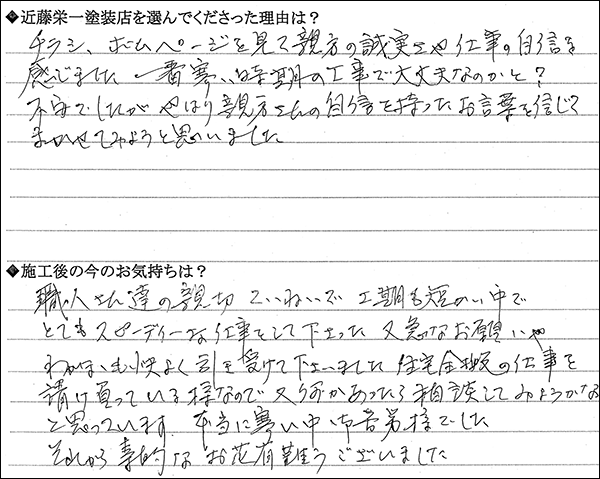 ◆近藤栄一塗装店を選んでくださった理由は？
チラシ、ホームページを見て親方の誠実さや仕事の自信を
感じました 一番寒い時期の工事で大丈夫なのかと？
不安でしたが やはり親方さんの自信を持ったお言葉を信じて
まかせてみようと思いました
◆施工後の今のお気持ちは？
職人さん達の親切 ていねいで 工期も短かい中で
とてもスピーディーな仕事をして下さった 又急なお願いや
わがままも快よく引き受けて下さいました 住宅全般の仕事を
請け負っている様なので 又何かあったら相談してみようかな
と思っています 本当に寒い中 御苦労様でした
それから素的なお花有難うございました